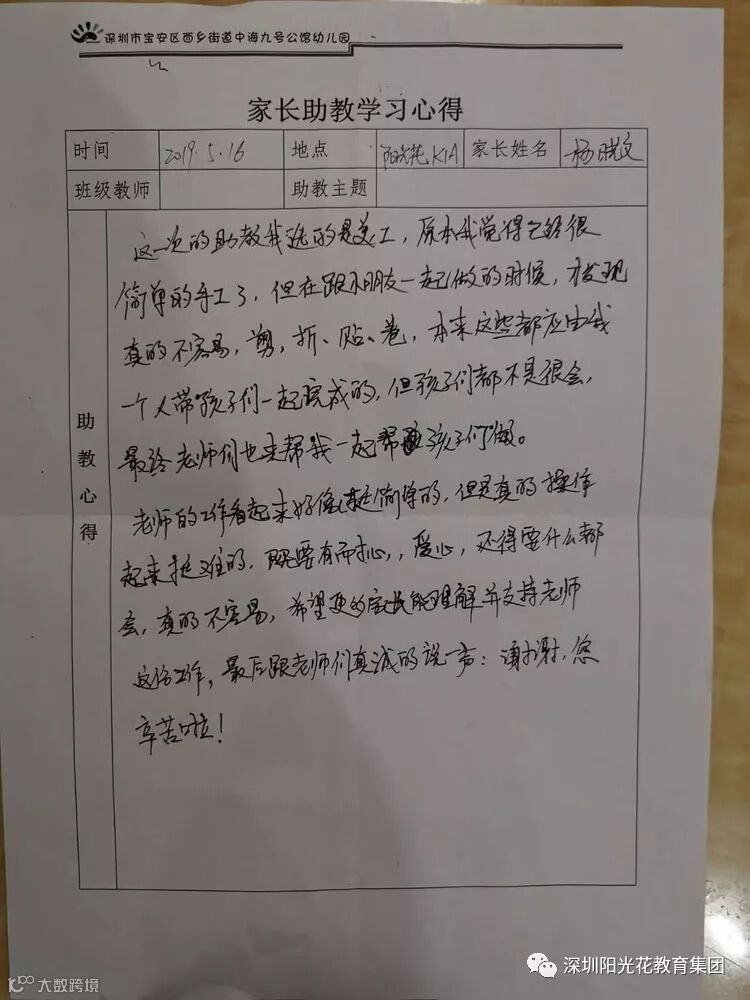 深圳市宝安区西乡街道中海九号公馆幼儿园
家长助教学习心得
时间 2019.5.16 地点 阳光花K1A 家长姓名 杨晓文
班级教师 助教主题
助教心得
这一次的助教我选的是美工，原本我觉得已经很
简单的手工了，但在跟小朋友一起做的时候，才发现
真的不容易，剪，折、贴、卷，本来这些都应由我
一个人带孩子们一起完成的，但孩子们都不是很会，
最终老师们也来帮我一起帮孩子们做。
老师的工作看起来好像挺简单的，但是真的操作
起来挺难的，既要有耐心，，爱心，还得要什么都
会，真的不容易，希望更的家长能理解并支持老师
这份工作，最后跟老师们真诚的说一声：谢谢，您
辛苦啦！
深圳阳光花教育集团
大数跨境